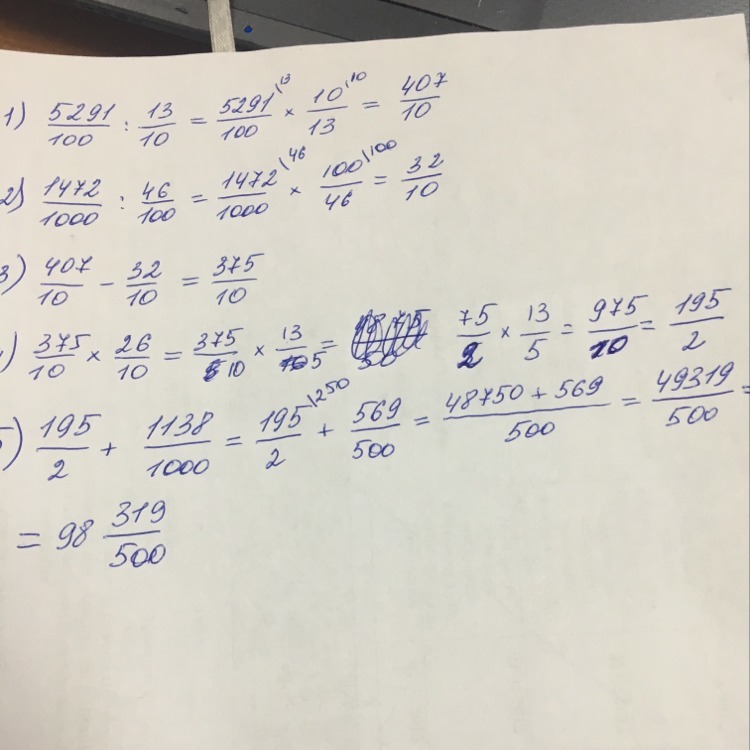 1) 5291/100 : 13/10 = 5291\13/100 × 10\10/13 = 407/10
2) 1472/1000 : 46/100 = 1472\46/1000 × 100\100/46 = 32/10
3) 407/10 - 32/10 = 375/10
) 375/10 × 26/10 = 375/10 × 13/5 = 75/2 × 13/5 = 975/10 = 195/2
5) 195/2 + 1138/1000 = 195\250/2 + 569/500 = 48750 + 569/500 = 49319/500 =
= 98 319/500